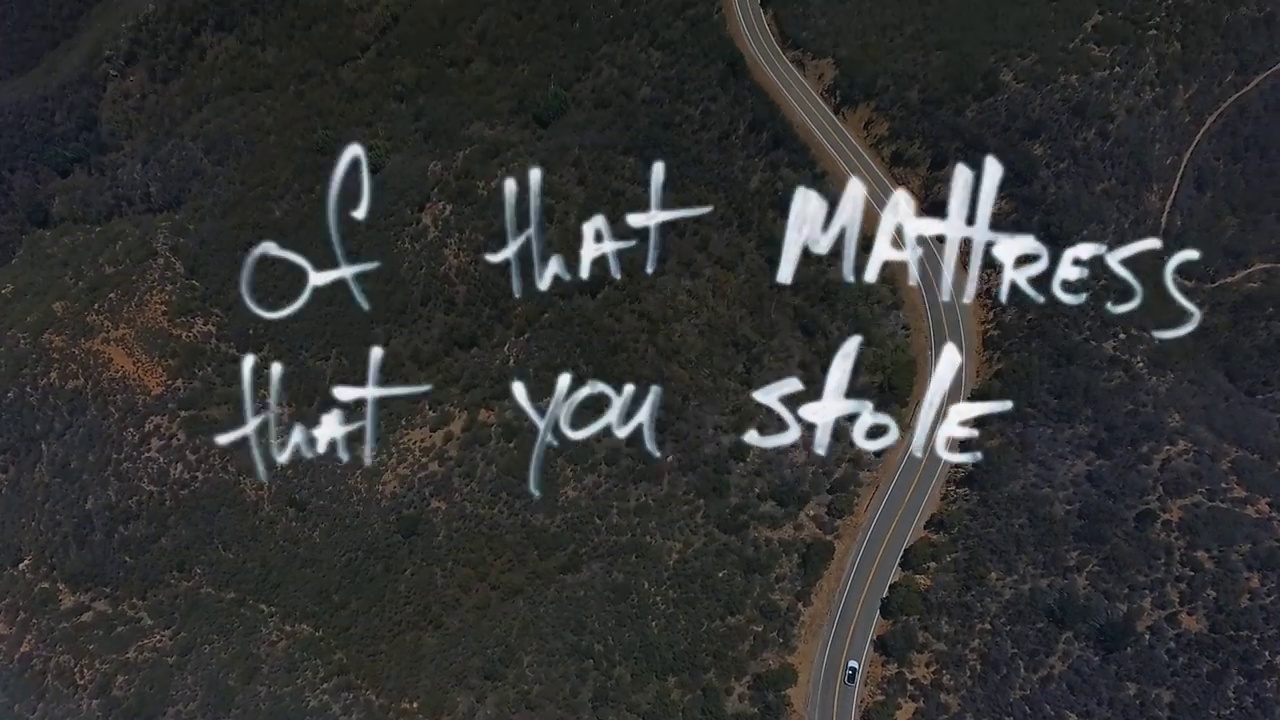 of that MAttRESS
that you stolE